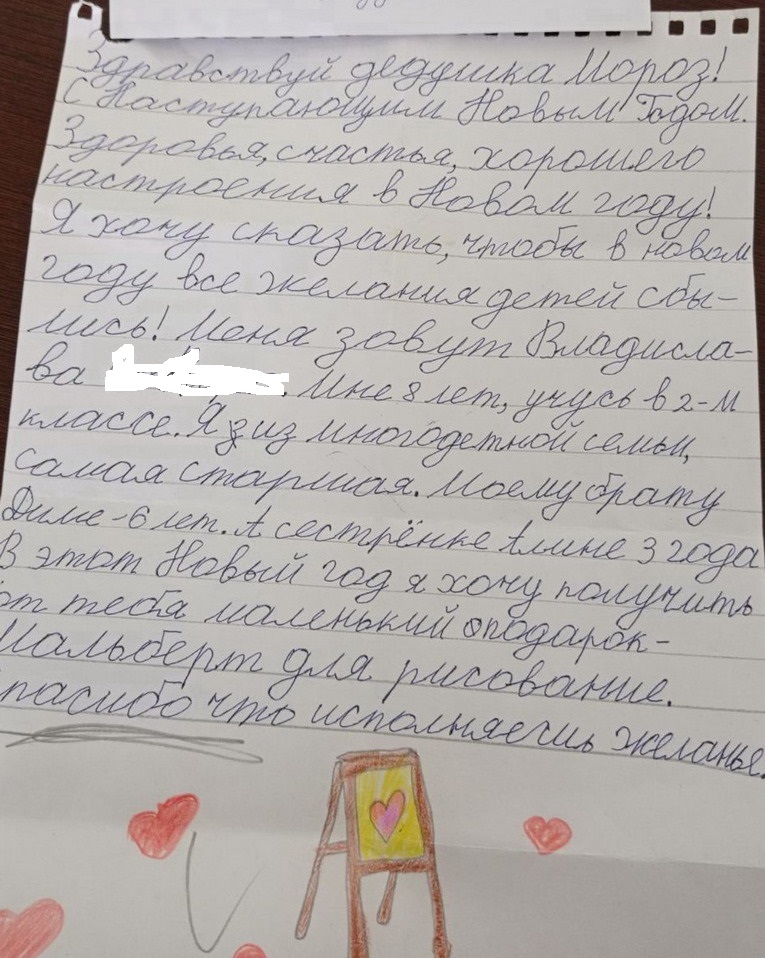 Здравствуй дедушка Мороз!
С Наступающим Новым Годом.
Здоровья, счастья, хорошего
настроения в Новом году!
Я хочу сказать, чтобы в новом
году все желания детей сбы-
лись! Меня зовут Владисла-
ва . Мне 8 лет, учусь в 2-м
классе. Я из многодетной семьи,
самая старшая. Моему брату
Диме - 6 лет. А сестрёнке Алине 3 года
В этот Новый год я хочу получить
от тебя маленький подарок-
Мальберт для рисование.
Спасибо что исполняешь желанье.